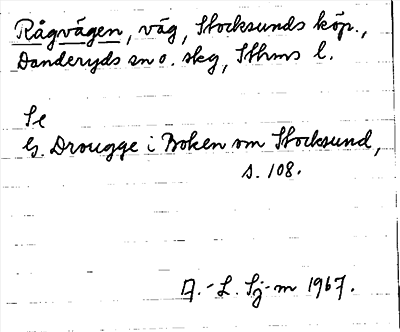 Rågvägen, väg, Stocksunds köp.,
Danderyds sn o. skg, Sthms l.
Se
G. Drougge i Boken om Stocksund,
s. 108.
A.-L. Sj-m 1967.